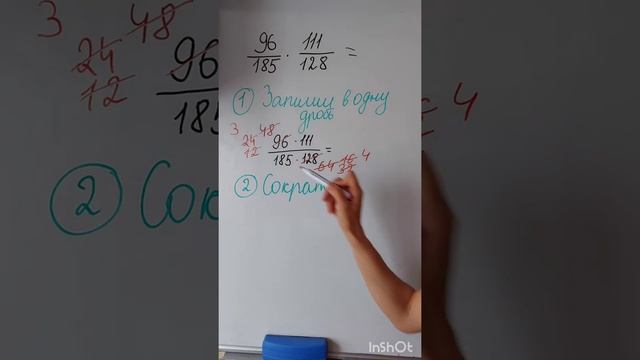 96/185 · 111/128 =
① Запишу в одну
дробь
3 24 48
12
96 · 111 / 185 · 128 =
64 16 4
32
② Сократ
InShOt